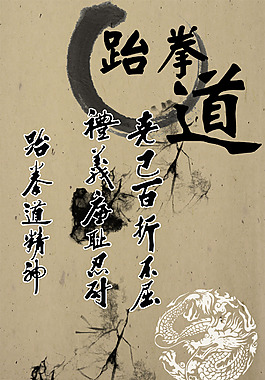 跆拳道
克己百折不屈
禮義廉耻忍耐
跆拳道精神